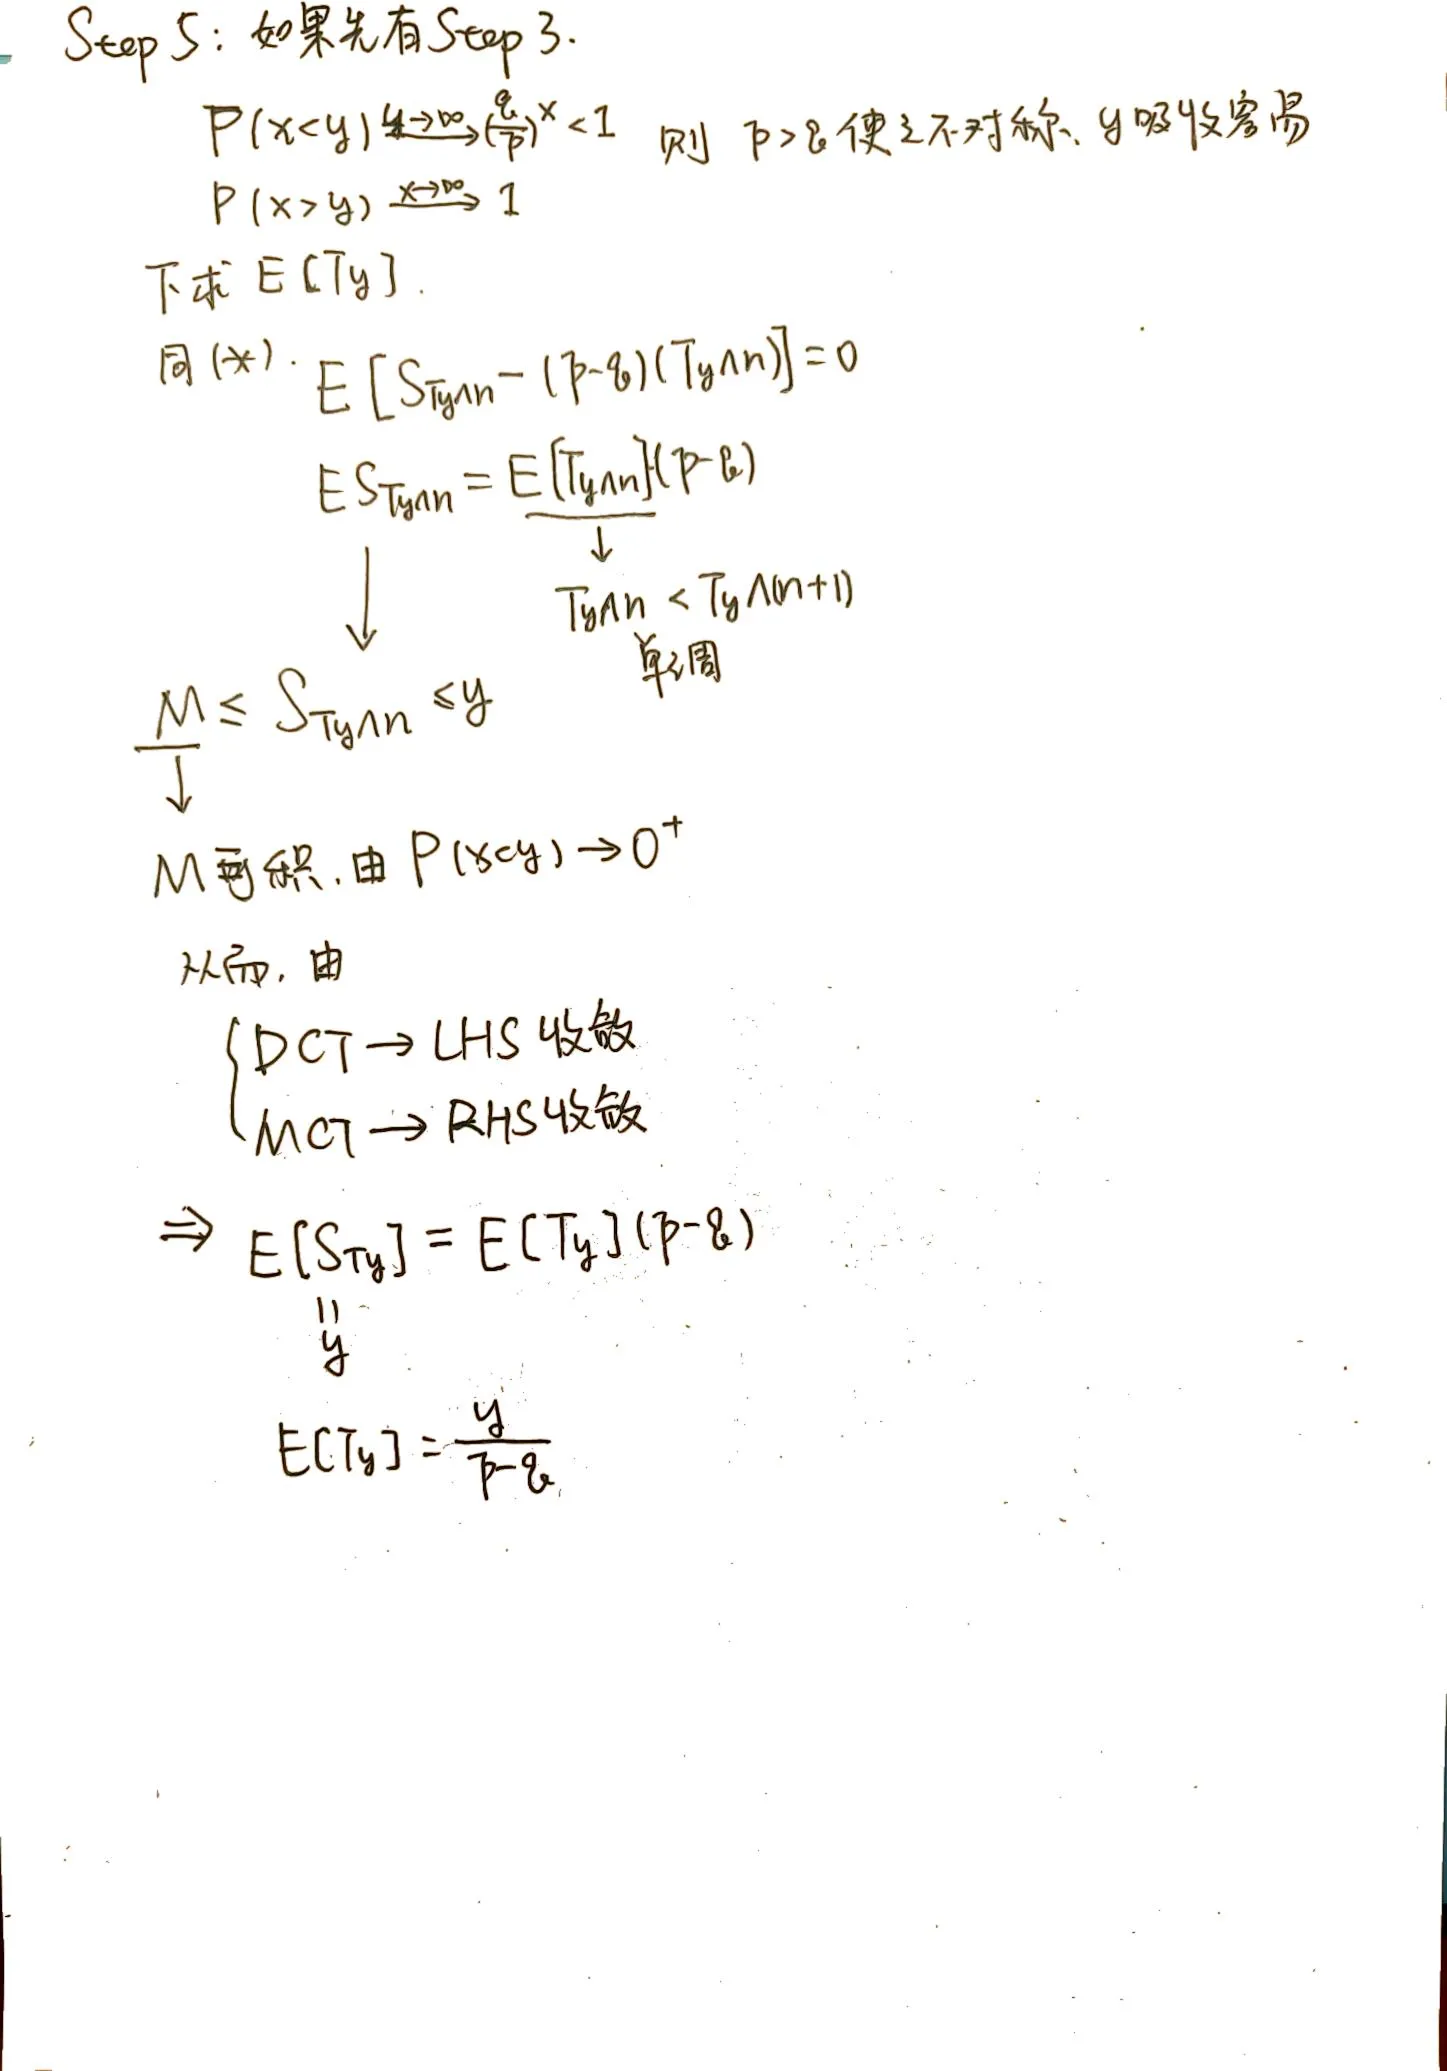 Step 5: 如果先有Step 3.
P(x<y) \xrightarrow{y→∞} (q/p)^x < 1 则 p>q 使之不对称、y吸收容易
P(x>y) \xrightarrow{x→∞} 1
下求 E[Ty].
同(*). E[S_{Ty∧n} - (p-q)(Ty∧n)] = 0
ES_{Ty∧n} = E[Ty∧n](p-q)
↓ ↓
Ty∧n < Ty∧(n+1)
单调
M ≤ S_{Ty∧n} ≤ y
↓
M可积. 由 P(x<y) → 0⁺
从而, 由
{ DCT → LHS 收敛
MCT → RHS 收敛
⇒ E[S_{Ty}] = E[Ty](p-q)
||
y
E[Ty] = y/(p-q)